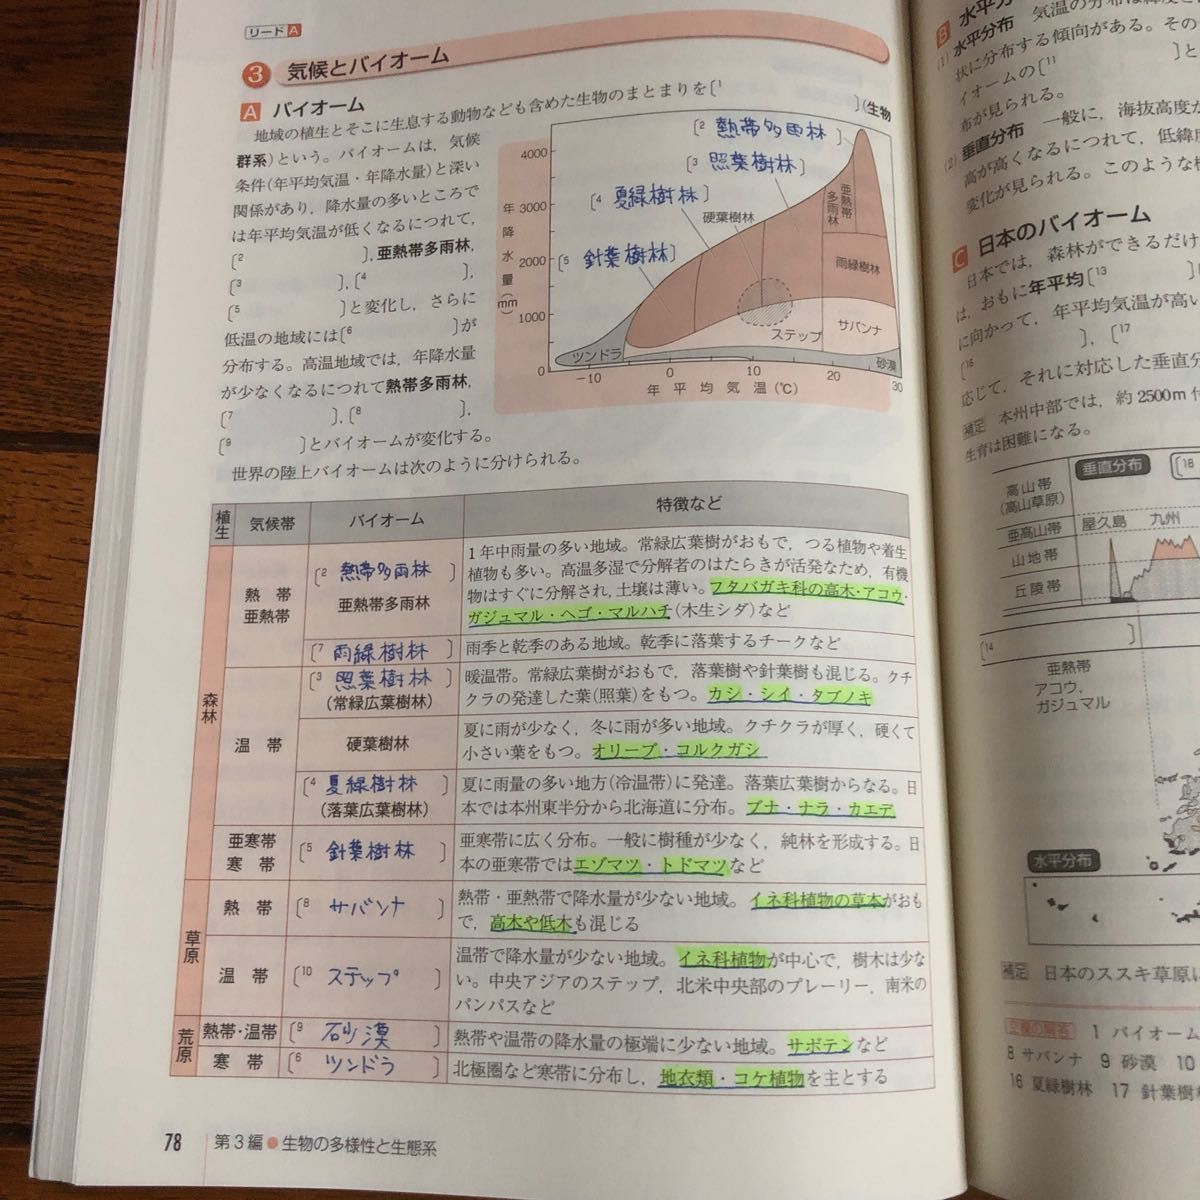 リードA
3 気候とバイオーム
A バイオーム
地域の植生とそこに生息する動物なども含めた生物のまとまりを〔1 〕(生物
群系)という。バイオームは，気候
条件(年平均気温・年降水量)と深い
関係があり，降水量の多いところで
は年平均気温が低くなるにつれて，
〔2 〕，亜熱帯多雨林，
〔3 〕，〔4 〕，
〔5 〕と変化し，さらに
低温の地域には〔6 〕が
分布する。高温地域では，年降水量
が少なくなるにつれて熱帯多雨林，
〔7 〕，〔8 〕，
〔9 〕とバイオームが変化する。
世界の陸上バイオームは次のように分けられる。
年降水量(mm)
4000
3000
2000
1000
0
〔2 熱帯多雨林〕
〔3 照葉樹林〕
〔4 夏緑樹林〕
硬葉樹林
〔5 針葉樹林〕
亜熱帯多雨林
雨緑樹林
サバンナ
ステップ
ツンドラ
砂漠
−10 0 10 20 30
年平均気温(℃)
植生 気候帯 バイオーム 特徴など
森林
熱帯
亜熱帯
〔2 熱帯多雨林〕
亜熱帯多雨林
1年中雨量の多い地域。常緑広葉樹がおもで，つる植物や着生
植物も多い。高温多湿で分解者のはたらきが活発なため，有機
物はすぐに分解され，土壌は薄い。フタバガキ科の高木・アコウ・
ガジュマル・ヘゴ・マルハチ(木生シダ)など
〔7 雨緑樹林〕
雨季と乾季のある地域。乾季に落葉するチークなど
温帯
〔3 照葉樹林〕
(常緑広葉樹林)
暖温帯。常緑広葉樹がおもで，落葉樹や針葉樹も混じる。クチ
クラの発達した葉(照葉)をもつ。カシ・シイ・タブノキ
硬葉樹林
夏に雨が少なく，冬に雨が多い地域。クチクラが厚く，硬くて
小さい葉をもつ。オリーブ・コルクガシ
〔4 夏緑樹林〕
(落葉広葉樹林)
夏に雨量の多い地方(冷温帯)に発達。落葉広葉樹からなる。日
本では本州東半分から北海道に分布。ブナ・ナラ・カエデ
亜寒帯
寒帯
〔5 針葉樹林〕
亜寒帯に広く分布。一般に樹種が少なく，純林を形成する。日
本の亜寒帯ではエゾマツ・トドマツなど
草原
熱帯
〔8 サバンナ〕
熱帯・亜熱帯で降水量が少ない地域。イネ科植物の草本がおも
で，高木や低木も混じる
温帯
〔10 ステップ〕
温帯で降水量が少ない地域。イネ科植物が中心で，樹木は少な
い。中央アジアのステップ，北米中央部のプレーリー，南米の
パンパスなど
荒原
熱帯・温帯
〔9 砂漠〕
熱帯や温帯の降水量の極端に少ない地域。サボテンなど
寒帯
〔6 ツンドラ〕
北極圏など寒帯に分布し，地衣類・コケ植物を主とする
78 第3編●生物の多様性と生態系
B 水平分
(1) 水平分布 気温の分布は緯度と
状に分布する傾向がある。その
イオームの〔11 〕と
布が見られる。
(2) 垂直分布 一般に，海抜高度が
高が高くなるにつれて，低緯度
変化が見られる。このような
C 日本のバイオーム
日本では，森林ができるだけ
は，おもに年平均〔13
に向かって，年平均気温が高い
〔16 〕，〔17
応じて，それに対応した垂直分
補足 本州中部では，約2500m付
生育は困難になる。
垂直分布 〔18
高山帯
(高山草原)
亜高山帯
山地帯
丘陵帯
屋久島 九州
〔14 〕
亜熱帯
アコウ，
ガジュマル
水平分布
補足 日本のススキ草原
空欄の解答 1 バイオーム
8 サバンナ 9 砂漠 10
16 夏緑樹林 17 針葉樹